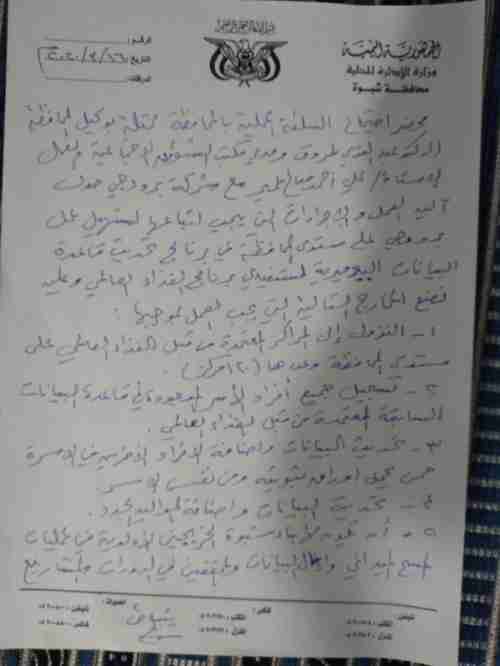 الجمهورية اليمنية
وزارة الإدارة المحلية
محافظة شبوة
الرقم:
التاريخ:
محضر اجتماع السلطة المحلية بالمحافظة ممثلة بوكيل المحافظة
الدكتور عبدالقوي لمروق ومدير مكتب الشؤون الاجتماعية والعمل
الاستاذ/ علي أحمد مع شركة برودجي حول
آلية العمل والإجراءات التي يجب اتباعها لتسهيل عمل
برودجي على مستوى المحافظة في برنامج تحديث قاعدة
البيانات لمستفيدي برنامج الغذاء العالمي وعليه
نضع المخارج التالية التي يجب العمل بموجبها:
١- النزول إلى المراكز المعتمدة من قبل الغذاء العالمي على
مستوى المحافظة وعددها (١٢٠ مركز).
٢- تسجيل جميع أفراد الأسر الموجودة في قاعدة البيانات
السابقة المعتمدة من قبل الغذاء العالمي.
٣- تحديث البيانات وإضافة الأفراد الآخرين في الأسرة
ممن يحمل أوراق ثبوتية ومن نفس الأسرة.
٤- تحديث البيانات وإضافة المواليد الجدد.
٥- أن تكون لأبناء شبوة الخريجين الأولوية في عمليات
المسح الميداني وإدخال البيانات والمثقفين في الدورات والمشاريع
يتبع